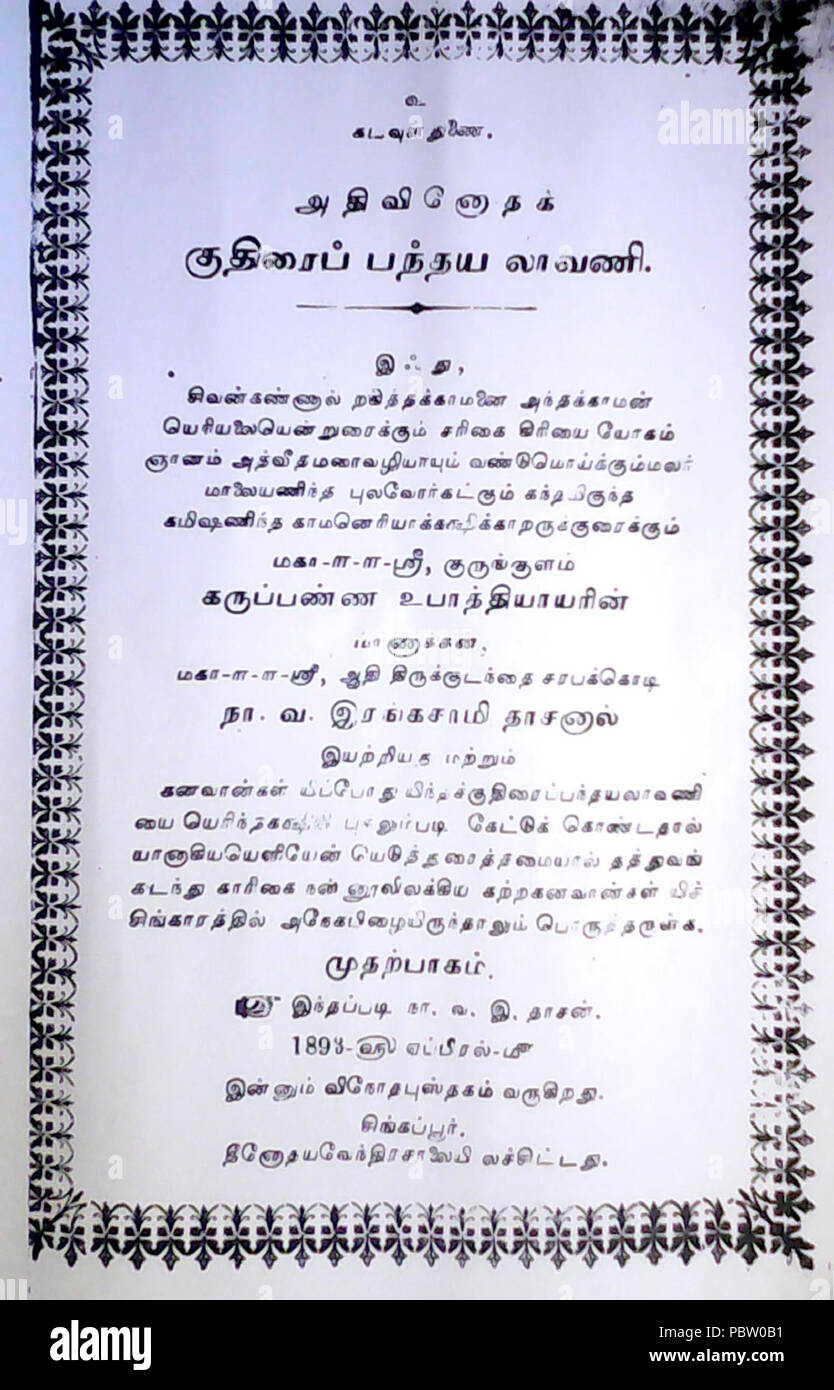 உ
கடவுள் துணை.
அதிவினோதக்
குதிரைப் பந்தய லாவணி.
இஃது,
சிவன்கண்ணால் றகித்தக்காமனை அந்தக்காமன்
யெரியலையென்றுரைக்கும் சரிகை கிரியை யோகம்
ஞானம் அத்வீதமரைவழியாயும் வண்டுமொய்க்கும்மலர்
மாலையணிந்த புலவோர்கட்கும் கந்தமிகுந்த
கமிஷணிந்த காமனெரியாக்கக்ஷிக்காறருக்குரைக்கும்
மகா-ள-ள-ஸ்ரீ, குருங்குளம்
கருப்பண்ண உபாத்தியாயரின்
மாணாக்கன்,
மகா-ள-ள-ஸ்ரீ, ஆதி திருக்குடந்தை சரபக்கொடி
நா. வ. இரங்கசாமி தாசனால்
இயற்றியது மற்றும்
கனவான்கள் யிப்போது யிந்தக்குதிரைப்பந்தயலாவணி
யை யெரிந்தகக்ஷியி கேட்டுக் கொண்டதால்
யானாகியயெளியேன் யெடுத்துரைத்தமையால் தத்துவங்
கடந்து காரிகை நன்னூலிலக்கிய கற்றகனவான்கள் யிச்
சிங்காரத்தில் அநேகபிழையிருந்தாலும் பொருத்தருள்க.
முதற்பாகம்.
இந்தப்படி நா. வ. இ. தாசன்.
1893-௵ ஏப்பீரல்-௴
இன்னும் வினோதபுஸ்தகம் வருகிறது.
சிங்கப்பூர்.
தீனோதயவேந்திரசாலையி லச்சிட்டது.
alamy
alamy
Image ID: PBW0B1
www.alamy.com